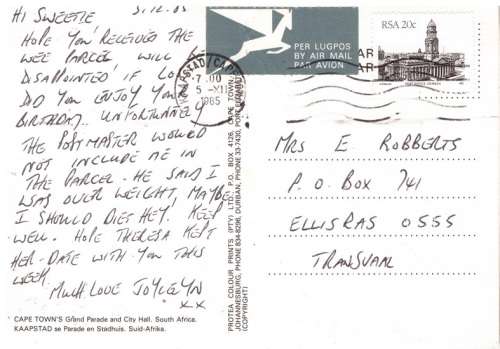 5.12.85
Hi Sweetie
Hope you received the
wee parcel will
disappointed if lo
Did you enjoy you
birthday. Unfortunately
the postmaster would
not include me in
the parcel. He said I
was over weight, maybe
I should diet hey. Keep
well. Hope Theresa kept
her date with you this
week.
Much love Joycelyn
xx
CAPE TOWN'S Grand Parade and City Hall. South Africa.
KAAPSTAD se Parade en Stadhuis. Suid-Afrika.
PROTEA COLOUR PRINTS (PTY) LTD., P.O. BOX 4126, CAPE TOWN,
JOHANNESBURG, PHONE 834-8296, DURBAN, PHONE 33-7430, PORT
(COPYRIGHT)
PER LUGPOS
BY AIR MAIL
PAR AVION
KAAPSTAD / CAPE
7.00
5 -XII
1985
RSA 20c
Mrs E Robberts
P.O. Box 741
Ellisras 0555
Transvaal